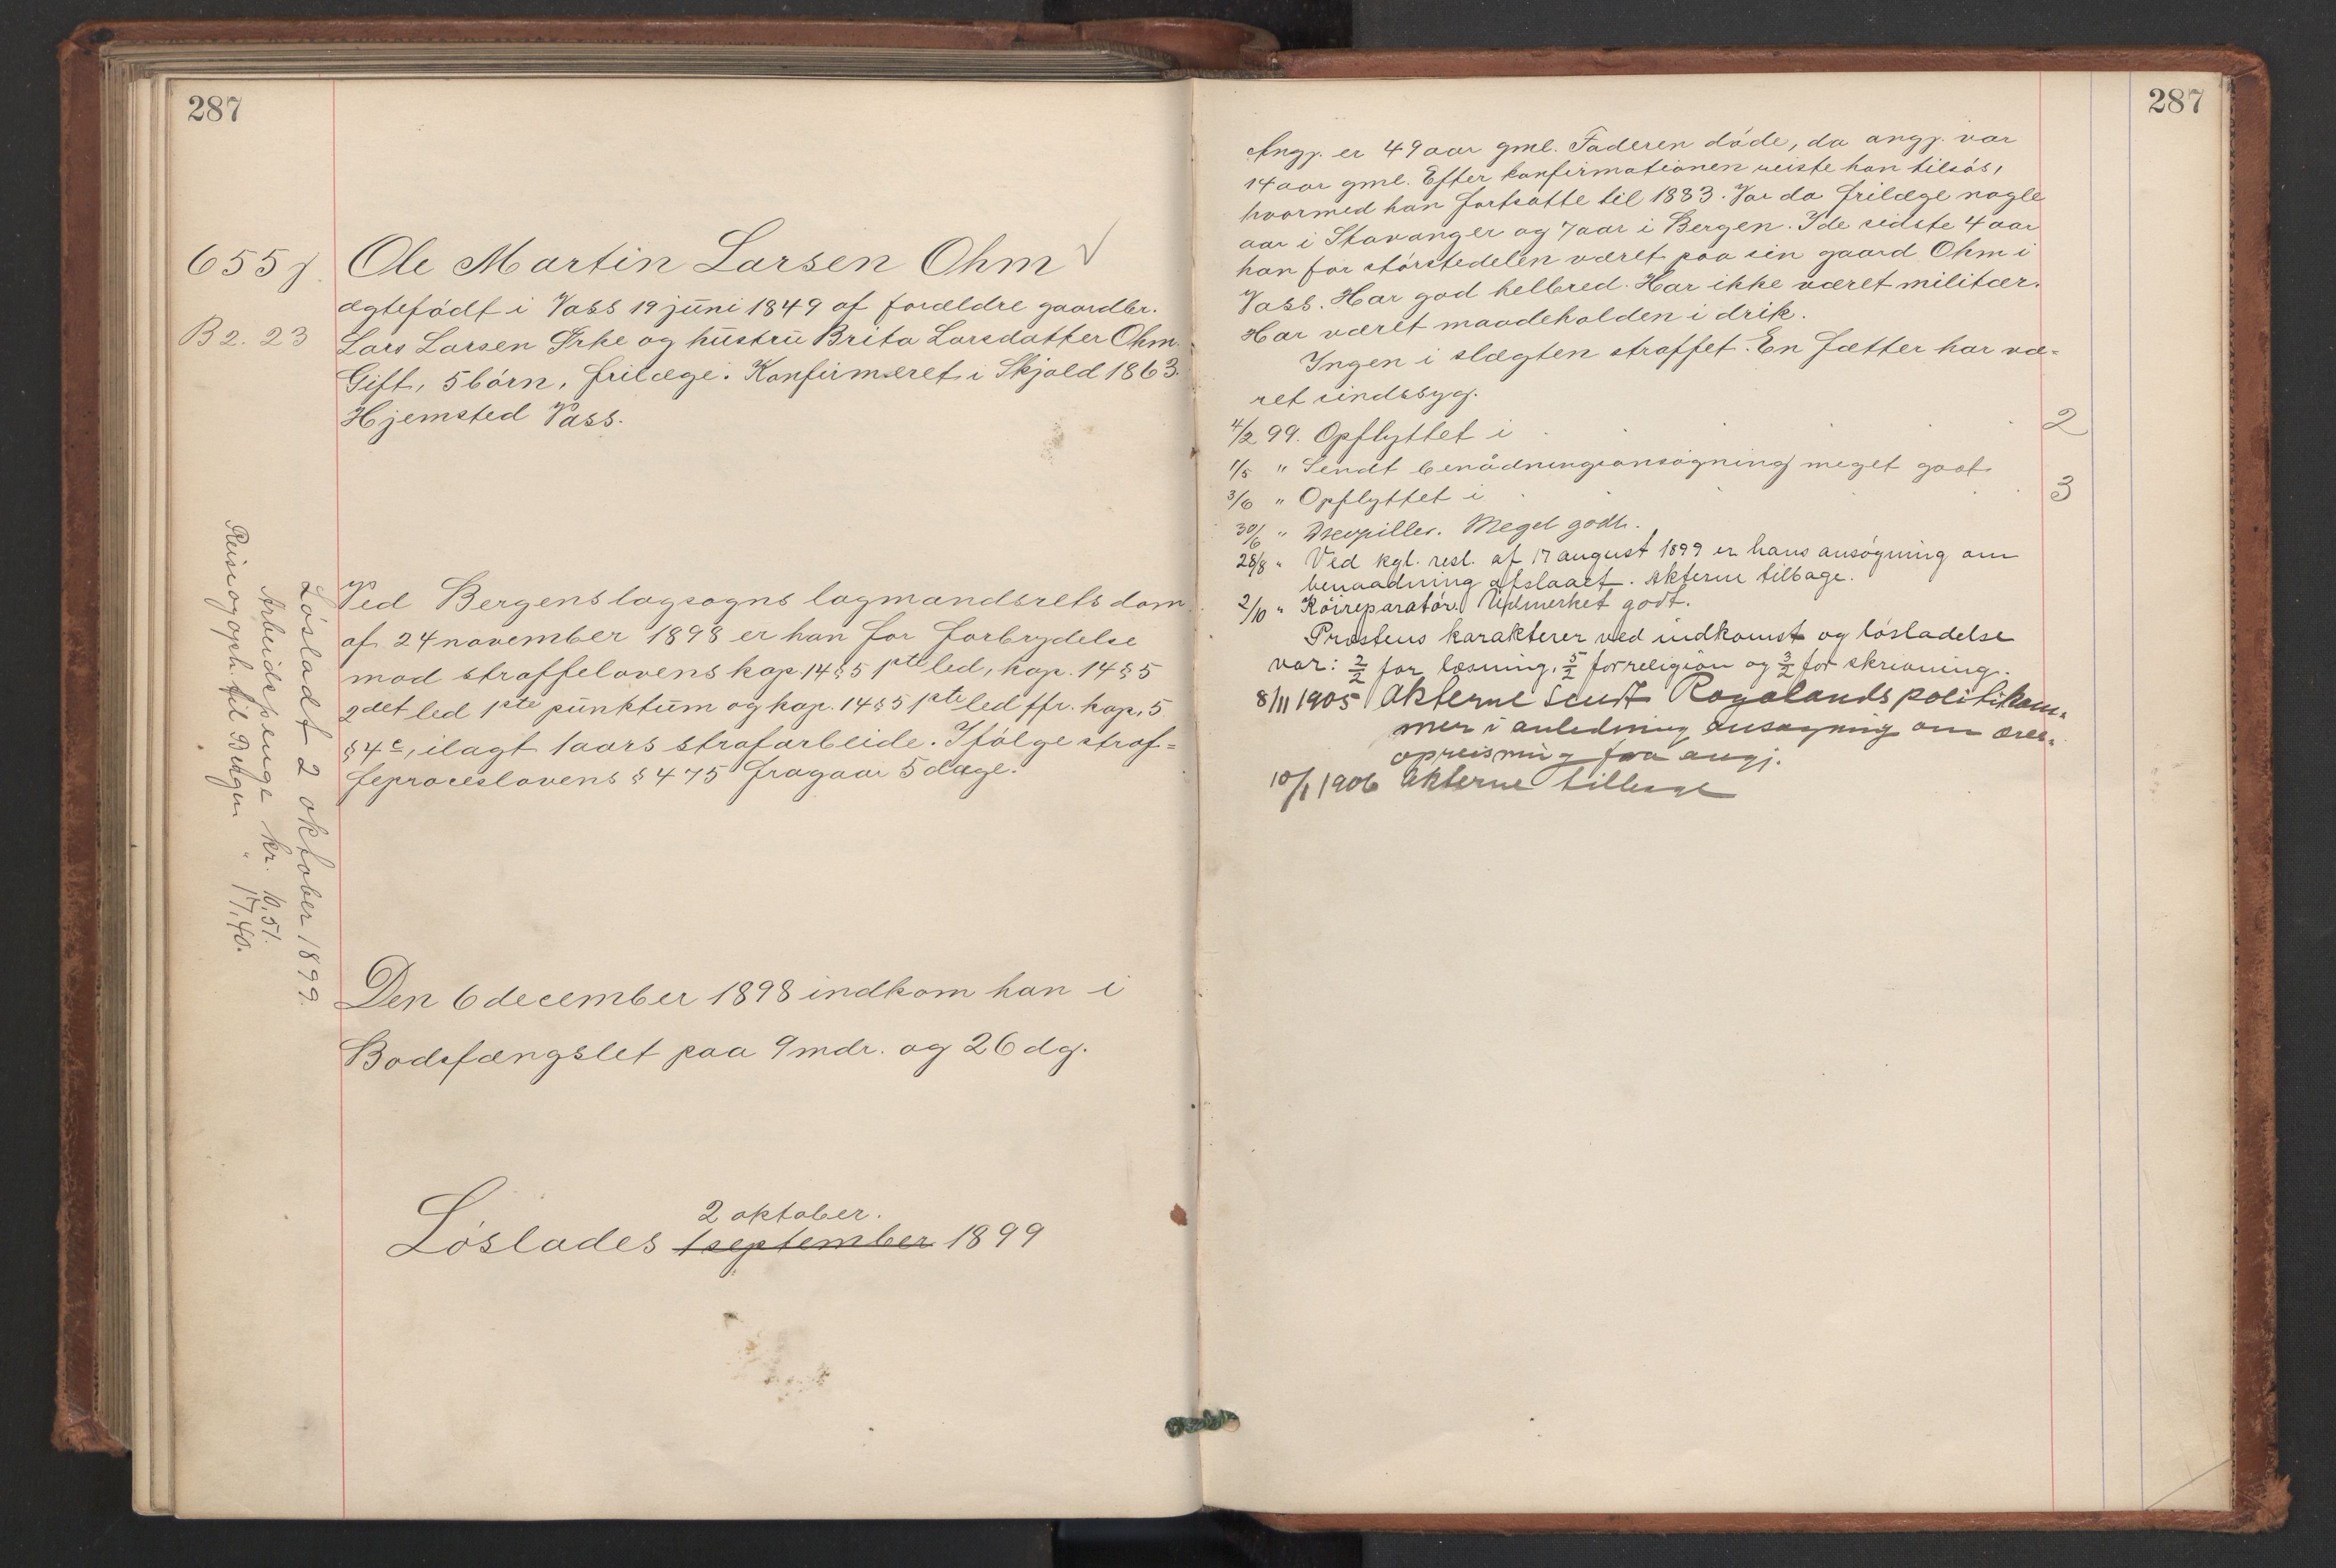 287
655 f.
Ole Martin Larsen Ohm ✓
ægtefødt i Vass 19 juni 1849 af forældre gaardbr.
B 2. 23
Lars Larsen Irke og hustru Brita Larsdatter Ohm.
Gift, 5 børn, frilæge. Konfirmeret i Skjold 1863.
Hjemsted Vass.
Ved Bergens lagsogns lagmandsrets dom
af 24 november 1898 er han for forbrydelse
mod straffelovens kap. 14 § 5 1ste led, kap. 14 § 5
2det led 1ste punktum og kap. 14 § 5 1ste led jfr. kap. 5
§ 4 c, ilagt 1 aars strafarbeide. Ifølge straf=
feproceslovens § 475 fragaar 5 dage.
Løsladt 2 oktober 1899.
Arbeidspenge kr. 10,51.
Reise og oph. til Bergen " 17,40.
Den 6 december 1898 indkom han i
Bodsfængslet paa 9 mdr. og 26 dg.
2 oktober.
Løslades 1 september 1899
287
Angj. er 49 aar gml. Faderen døde, da angj. var
14 aar gml. Efter konfirmationen reiste han tilsøs,
hvormed han fortsatte til 1883. Var da frilæge nogle
aar i Stavanger og 7 aar i Bergen. I de sidste 4 aar
han for størstedelen været paa sin gaard Ohm i
Vass. Har god helbred. Har ikke været militær.
Har været maadeholden i drik.
Ingen i slægten straffet. En fætter har væ=
ret sindssyg.
4/2 99. Opflyttet i . . . . 2
1/5 " Sendt benådningsansøgning meget godt
3/6 " Opflyttet i . . . . 3
30/6 " Meget godt.
28/8 " Ved kgl. resl. af 17 august 1899 er hans ansøgning om
benaadning afslaaet. Akterne tilbage.
2/10 " Køireparatør. Udmerket godt.
Prestens karakterer ved indkomst og løsladelse
var: 2/2 for læsning, 5/2 for religion og 3/2 for skrivning.
8/11 1905 Akterne sendt Rogalands politikam=
mer i anledning ansøgning om æres=
opreisning fra angj.
10/1 1906 Akterne tilbage